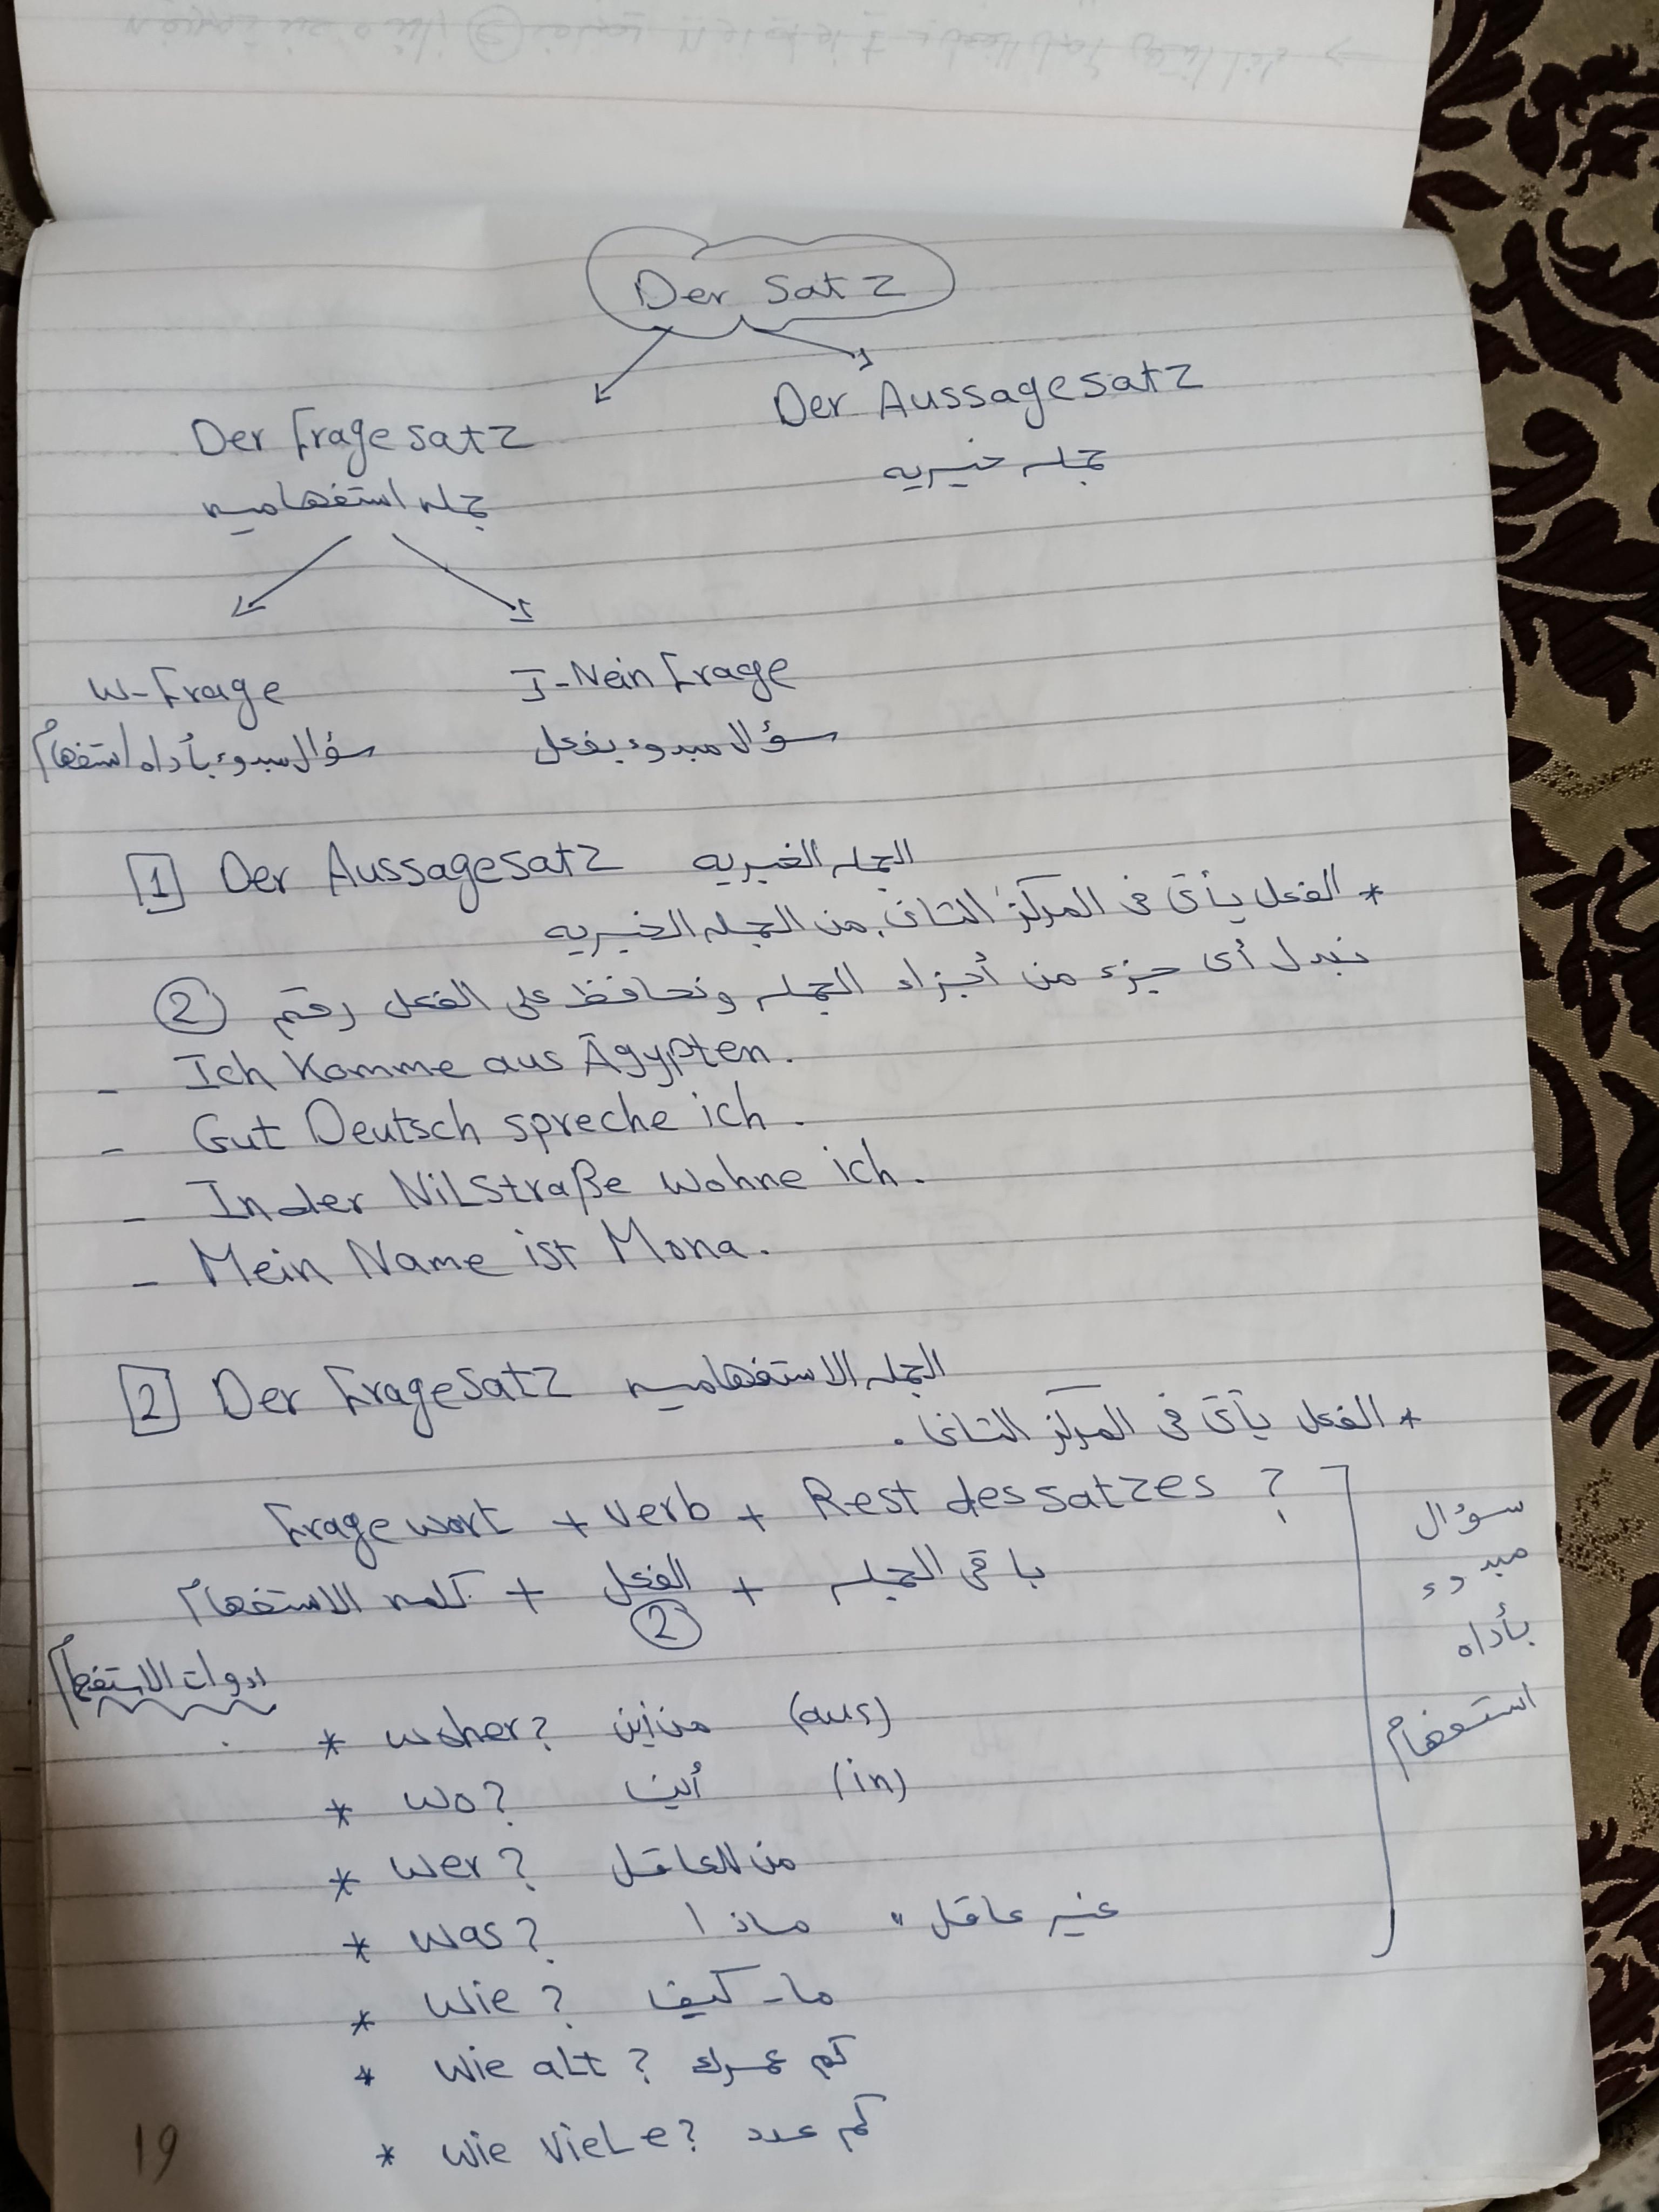 Der Satz
Der Aussagesatz
جمله خبريه
Der Fragesatz
جمله استفهاميه
W-Frage
J-Nein Frage
سؤال مبدوء بأداه استفهام
سؤال مبدوء بفعل
1 Der Aussagesatz الجمله الخبريه
* الفعل يأتى فى المركز الثانى من الجمله الخبريه
نبدل أى جزء من أجزاء الجمله ونحافظ على الفعل رقم 2
- Ich Komme aus Ägypten.
- Gut Deutsch spreche ich.
- In der NiLStraße wohne ich.
- Mein Name ist Mona.
2 Der Fragesatz الجمله الاستفهاميه
* الفعل يأتى فى المركز الثانى.
Fragewort + Verb + Rest des satzes ?
كلمه الاستفهام + الفعل + باقى الجمله
2
سؤال
مبدوء
بأداه
استفهام
ادوات الاستفهام
* woher? من أين (aus)
* wo? أين (in)
* wer? من للعاقل
* was? ماذا " غير عاقل
* wie? ما - كيف
* wie aLt? كم عمرك
* wie vieLe? كم عدد
19